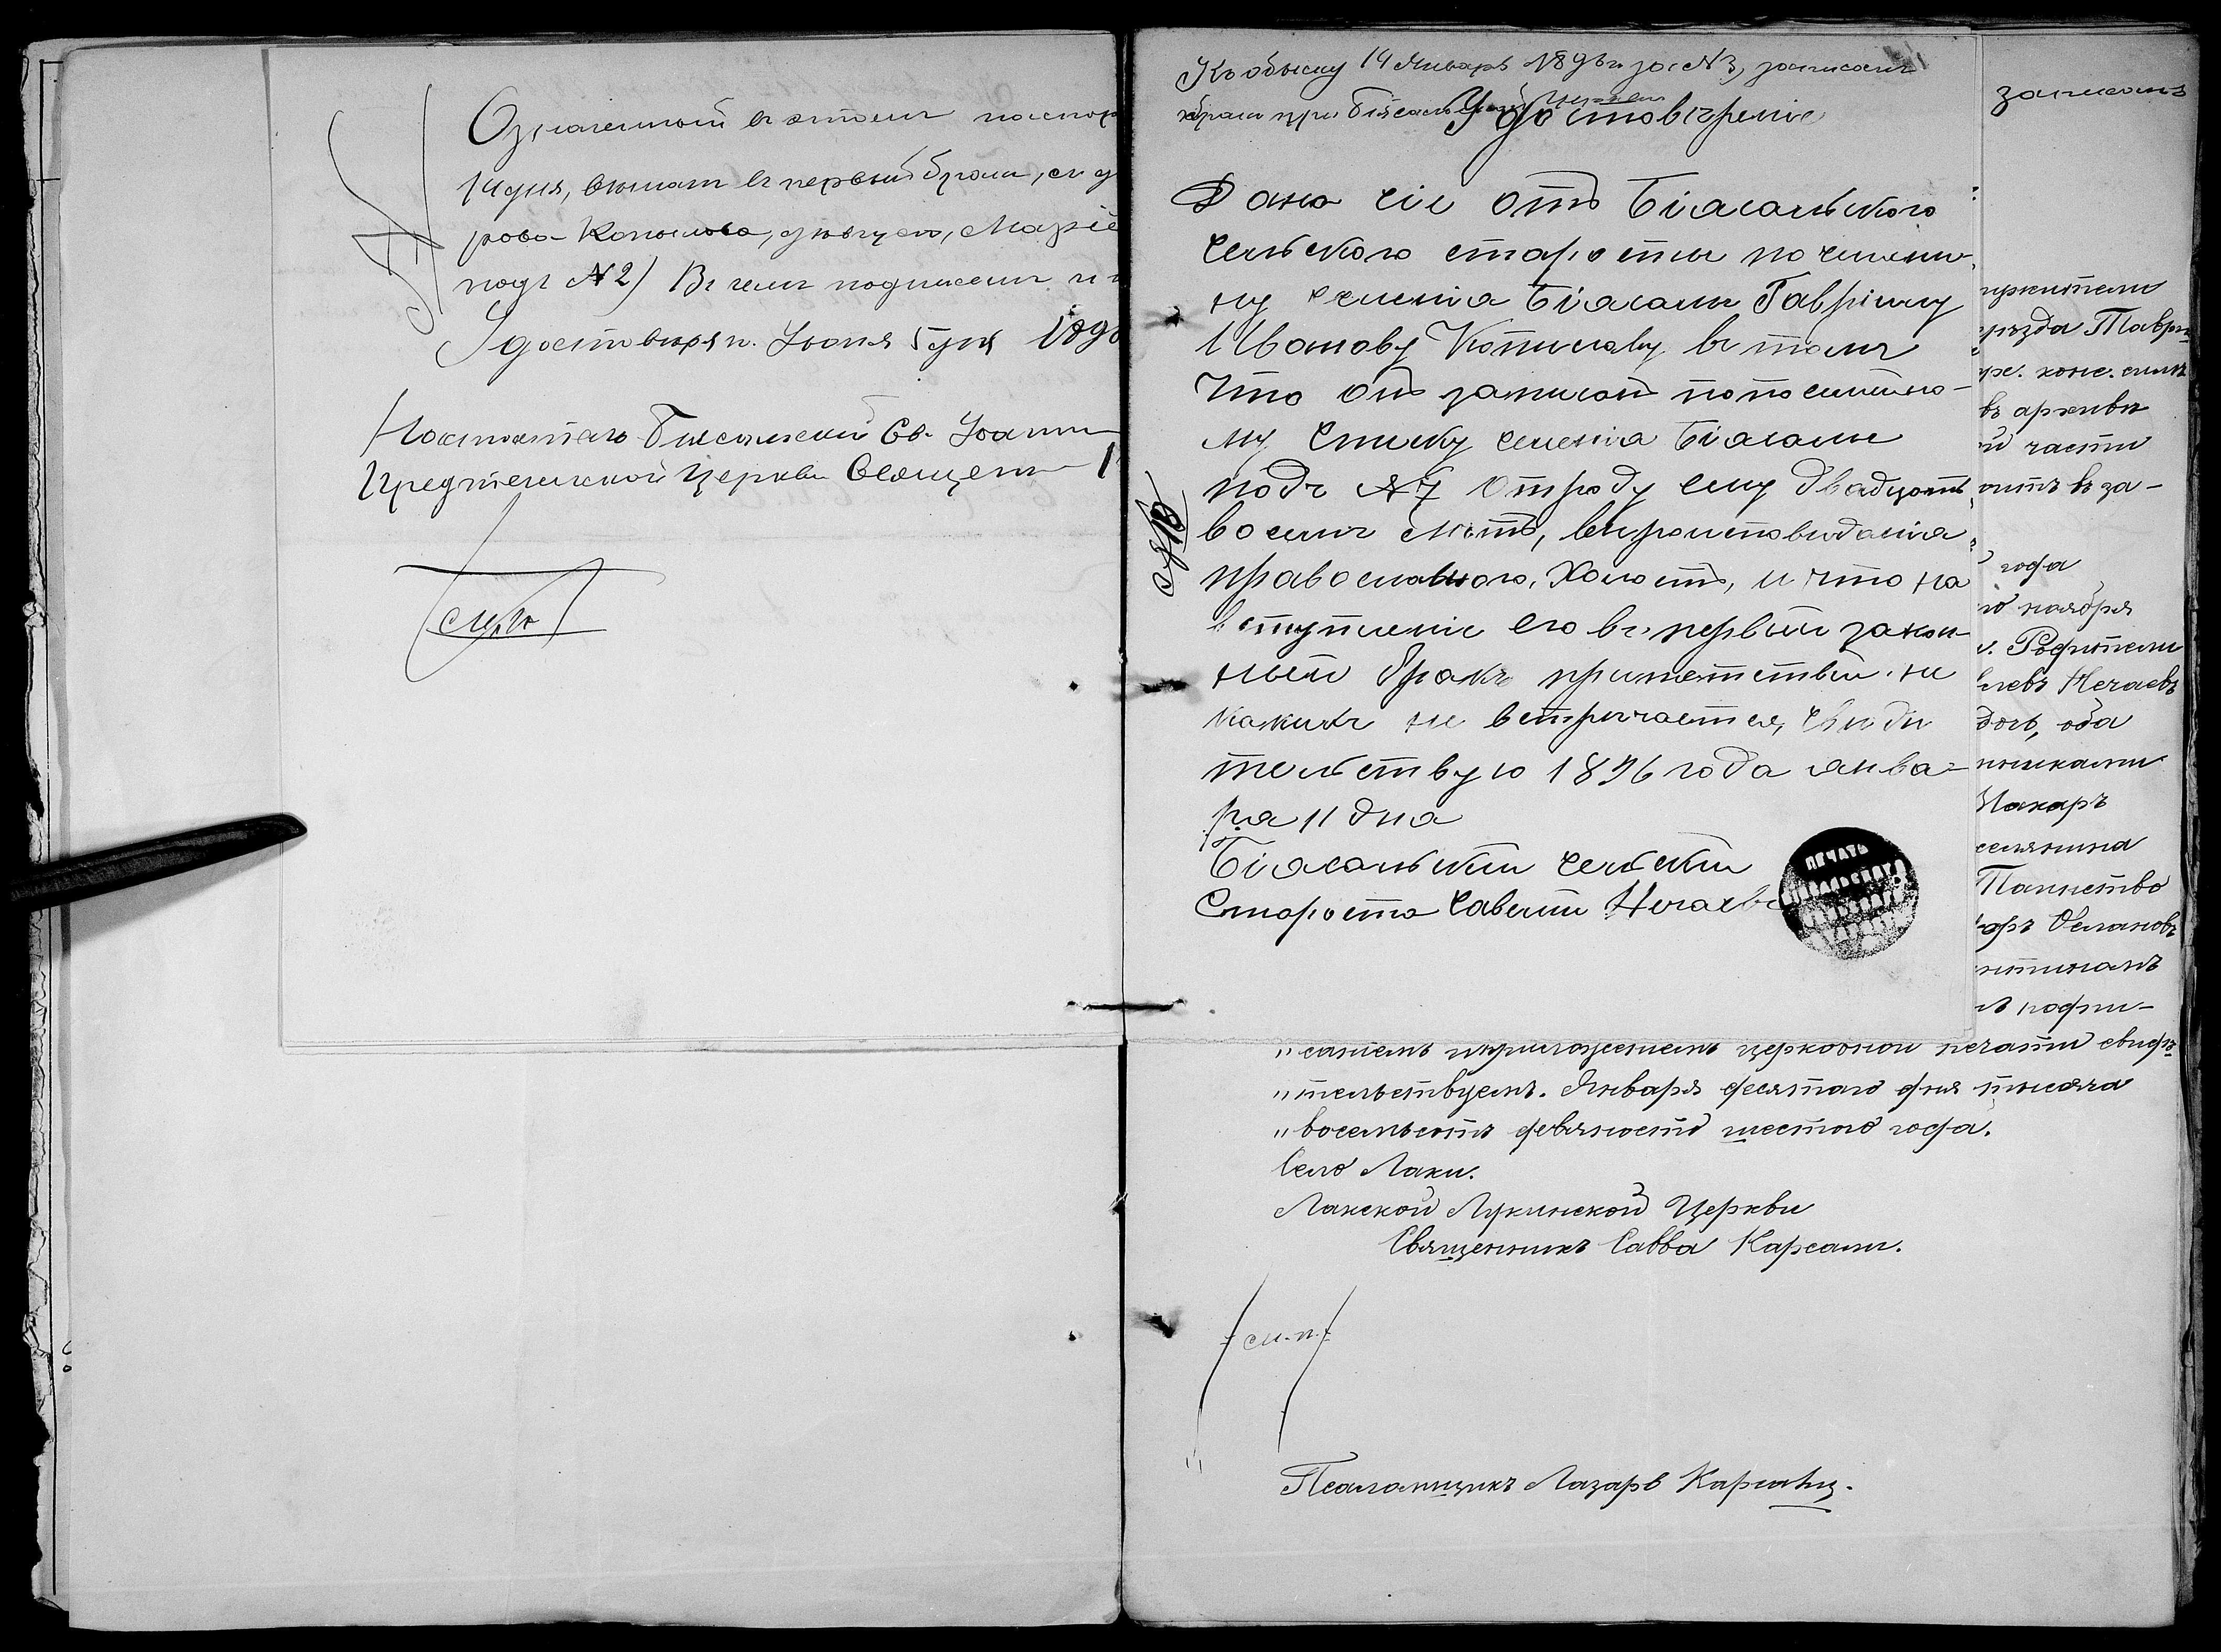 Означенный въ этомъ паспор
14 дня, вступилъ въ первый бракъ, съ д
рова Копылова, девицею, Маріе
подъ № 2) Въ чемъ подписомъ и п
Удостовѣряю. Іюня 5 дня 189
Настоятель Біасальской Св. Іоанно
Предтеченской Церкви Священ
(м.п.)
Къ обыску 14 Января 1896 г. за № 3, записанъ
бракъ при Біасальской Церкви
Удостовѣреніе
Дано сіе отъ Біасальского
Сельского старосты поселяни-
ну селенія Біасалы Гаврінлу
Иванову Копылову въ томъ
Что онъ записанъ по посемейно-
му Списку селенія Біасалы
подъ № 7 отроду ему двадцать
восемь лѣтъ, вѣроисповиданія
православного, Холостъ, и что на
вступленіе его въ первый закон-
ный бракъ припятствій ни
какихъ не встрѣчается, Свиди
тельствую 1896 года янва-
ря 11 дня
Біасальскій сельскій
Староста Савелій Нечаевъ
№ 18
ПЕЧАТЬ
записанъ
жители
уѣзда Таври
въ архивѣ
й части
итъ въ за-
года
го ноября
Родители
Нечаевъ
оба
Макаръ
селянина
Таинство
Ѳеланов
"саніемъ и приложеніемъ церковной печати свидѣ
"тельствуемъ. Января десятаго дня тысяча
"восемьсотъ девяносто шестого года.
Село Лаки.
Лакской Лукинской Церкви
Священникъ Савва Карсали.
(м.п.)
Псаломщикъ Лазарь